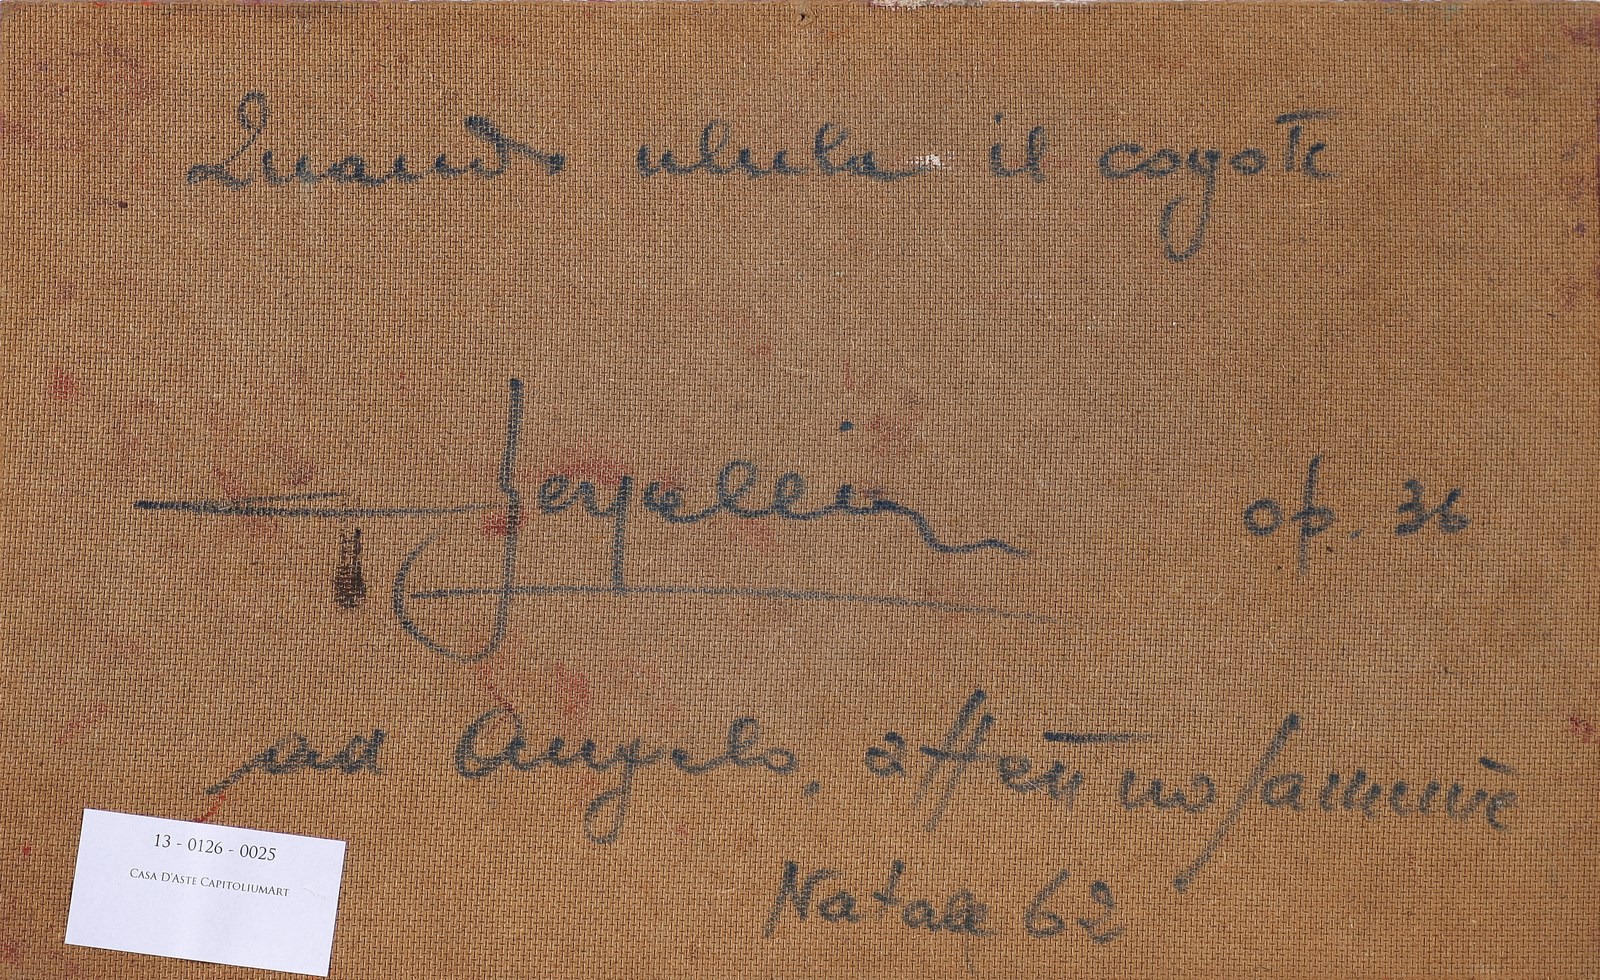 Quando ulula il coyote
op. 36
ad Angelo, affettuosamente
Natale 62
13 - 0126 - 0025
Casa D'Aste CapitoliumArt